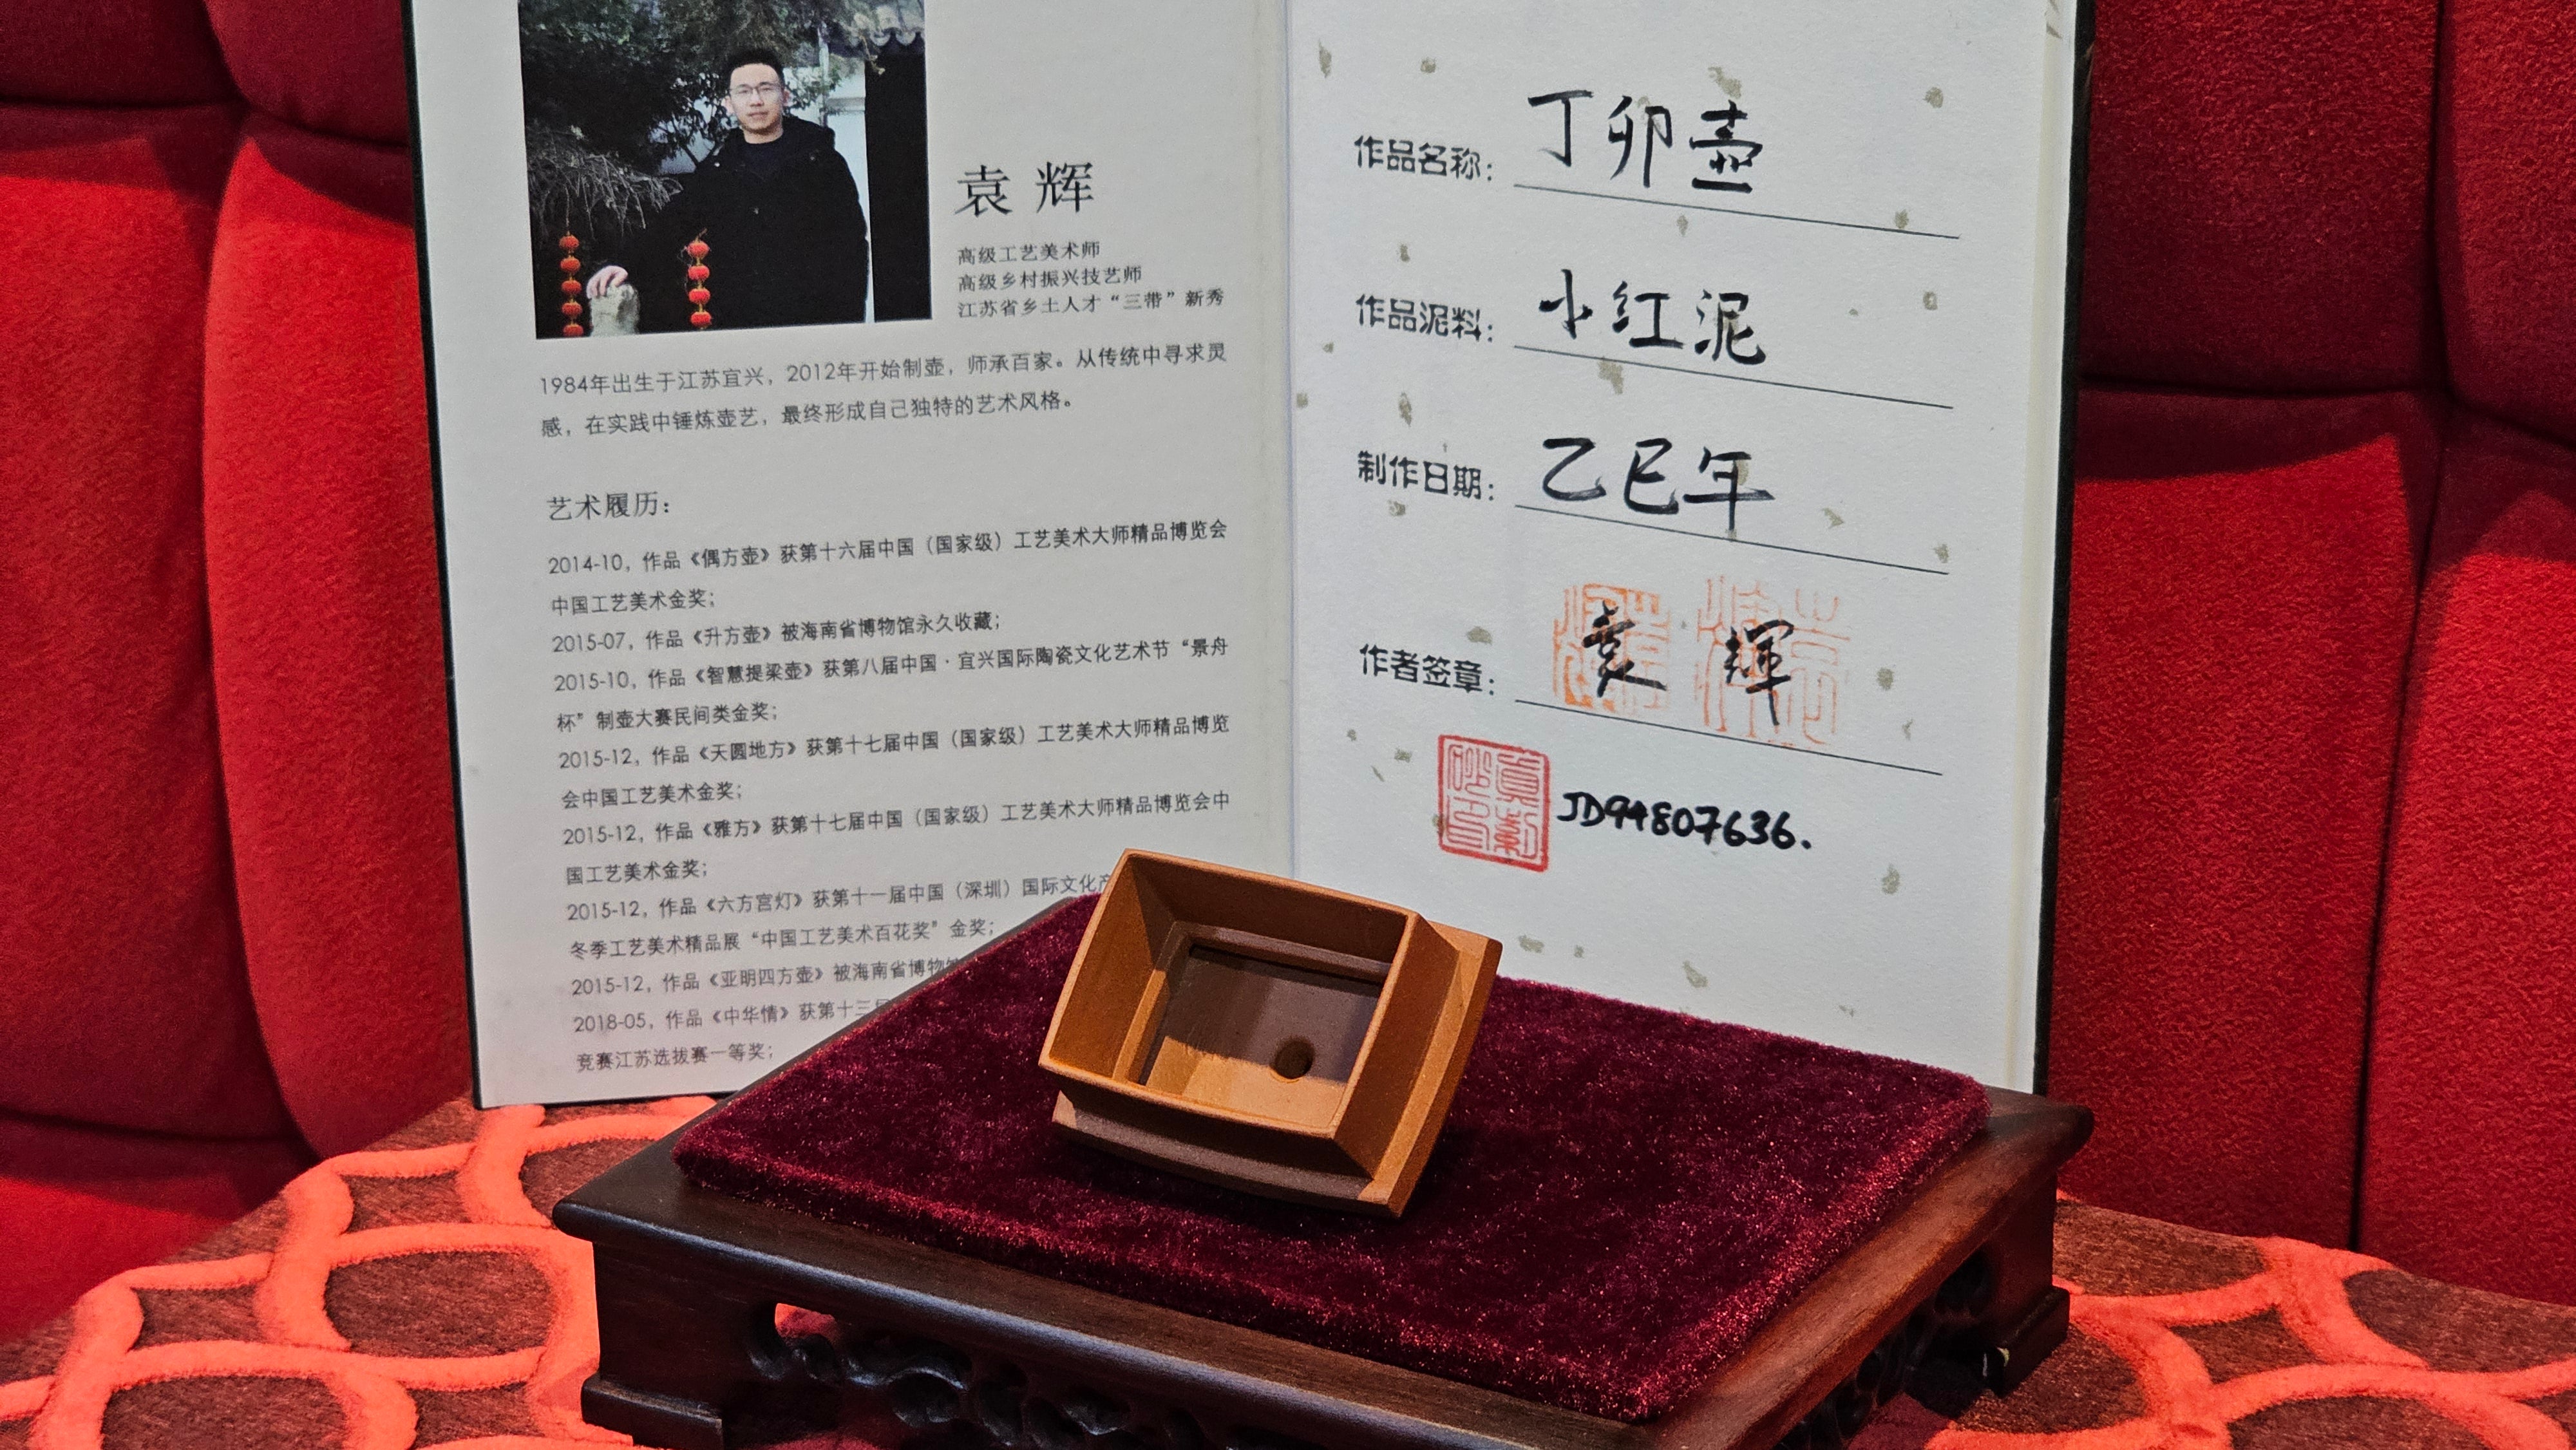 袁辉
高级工艺美术师
高级乡村振兴技艺师
江苏省乡土人才“三带”新秀
1984年出生于江苏宜兴，2012年开始制壶，师承百家。从传统中寻求灵
感，在实践中锤炼壶艺，最终形成自己独特的艺术风格。
艺术履历：
2014-10，作品《偶方壶》获第十六届中国（国家级）工艺美术大师精品博览会
中国工艺美术金奖；
2015-07，作品《升方壶》被海南省博物馆永久收藏；
2015-10，作品《智慧提梁壶》获第八届中国·宜兴国际陶瓷文化艺术节“景舟
杯”制壶大赛民间类金奖；
2015-12，作品《天圆地方》获第十七届中国（国家级）工艺美术大师精品博览
会中国工艺美术金奖；
2015-12，作品《雅方》获第十七届中国（国家级）工艺美术大师精品博览会中
国工艺美术金奖；
2015-12，作品《六方宫灯》获第十一届中国（深圳）国际文化产
冬季工艺美术精品展“中国工艺美术百花奖”金奖；
2015-12，作品《亚明四方壶》被海南省博物
2018-05，作品《中华情》获第十三
竞赛江苏选拔赛一等奖；
作品名称：丁卯壶
作品泥料：小红泥
制作日期：乙巳年
作者签章：袁輝
JD94807636.